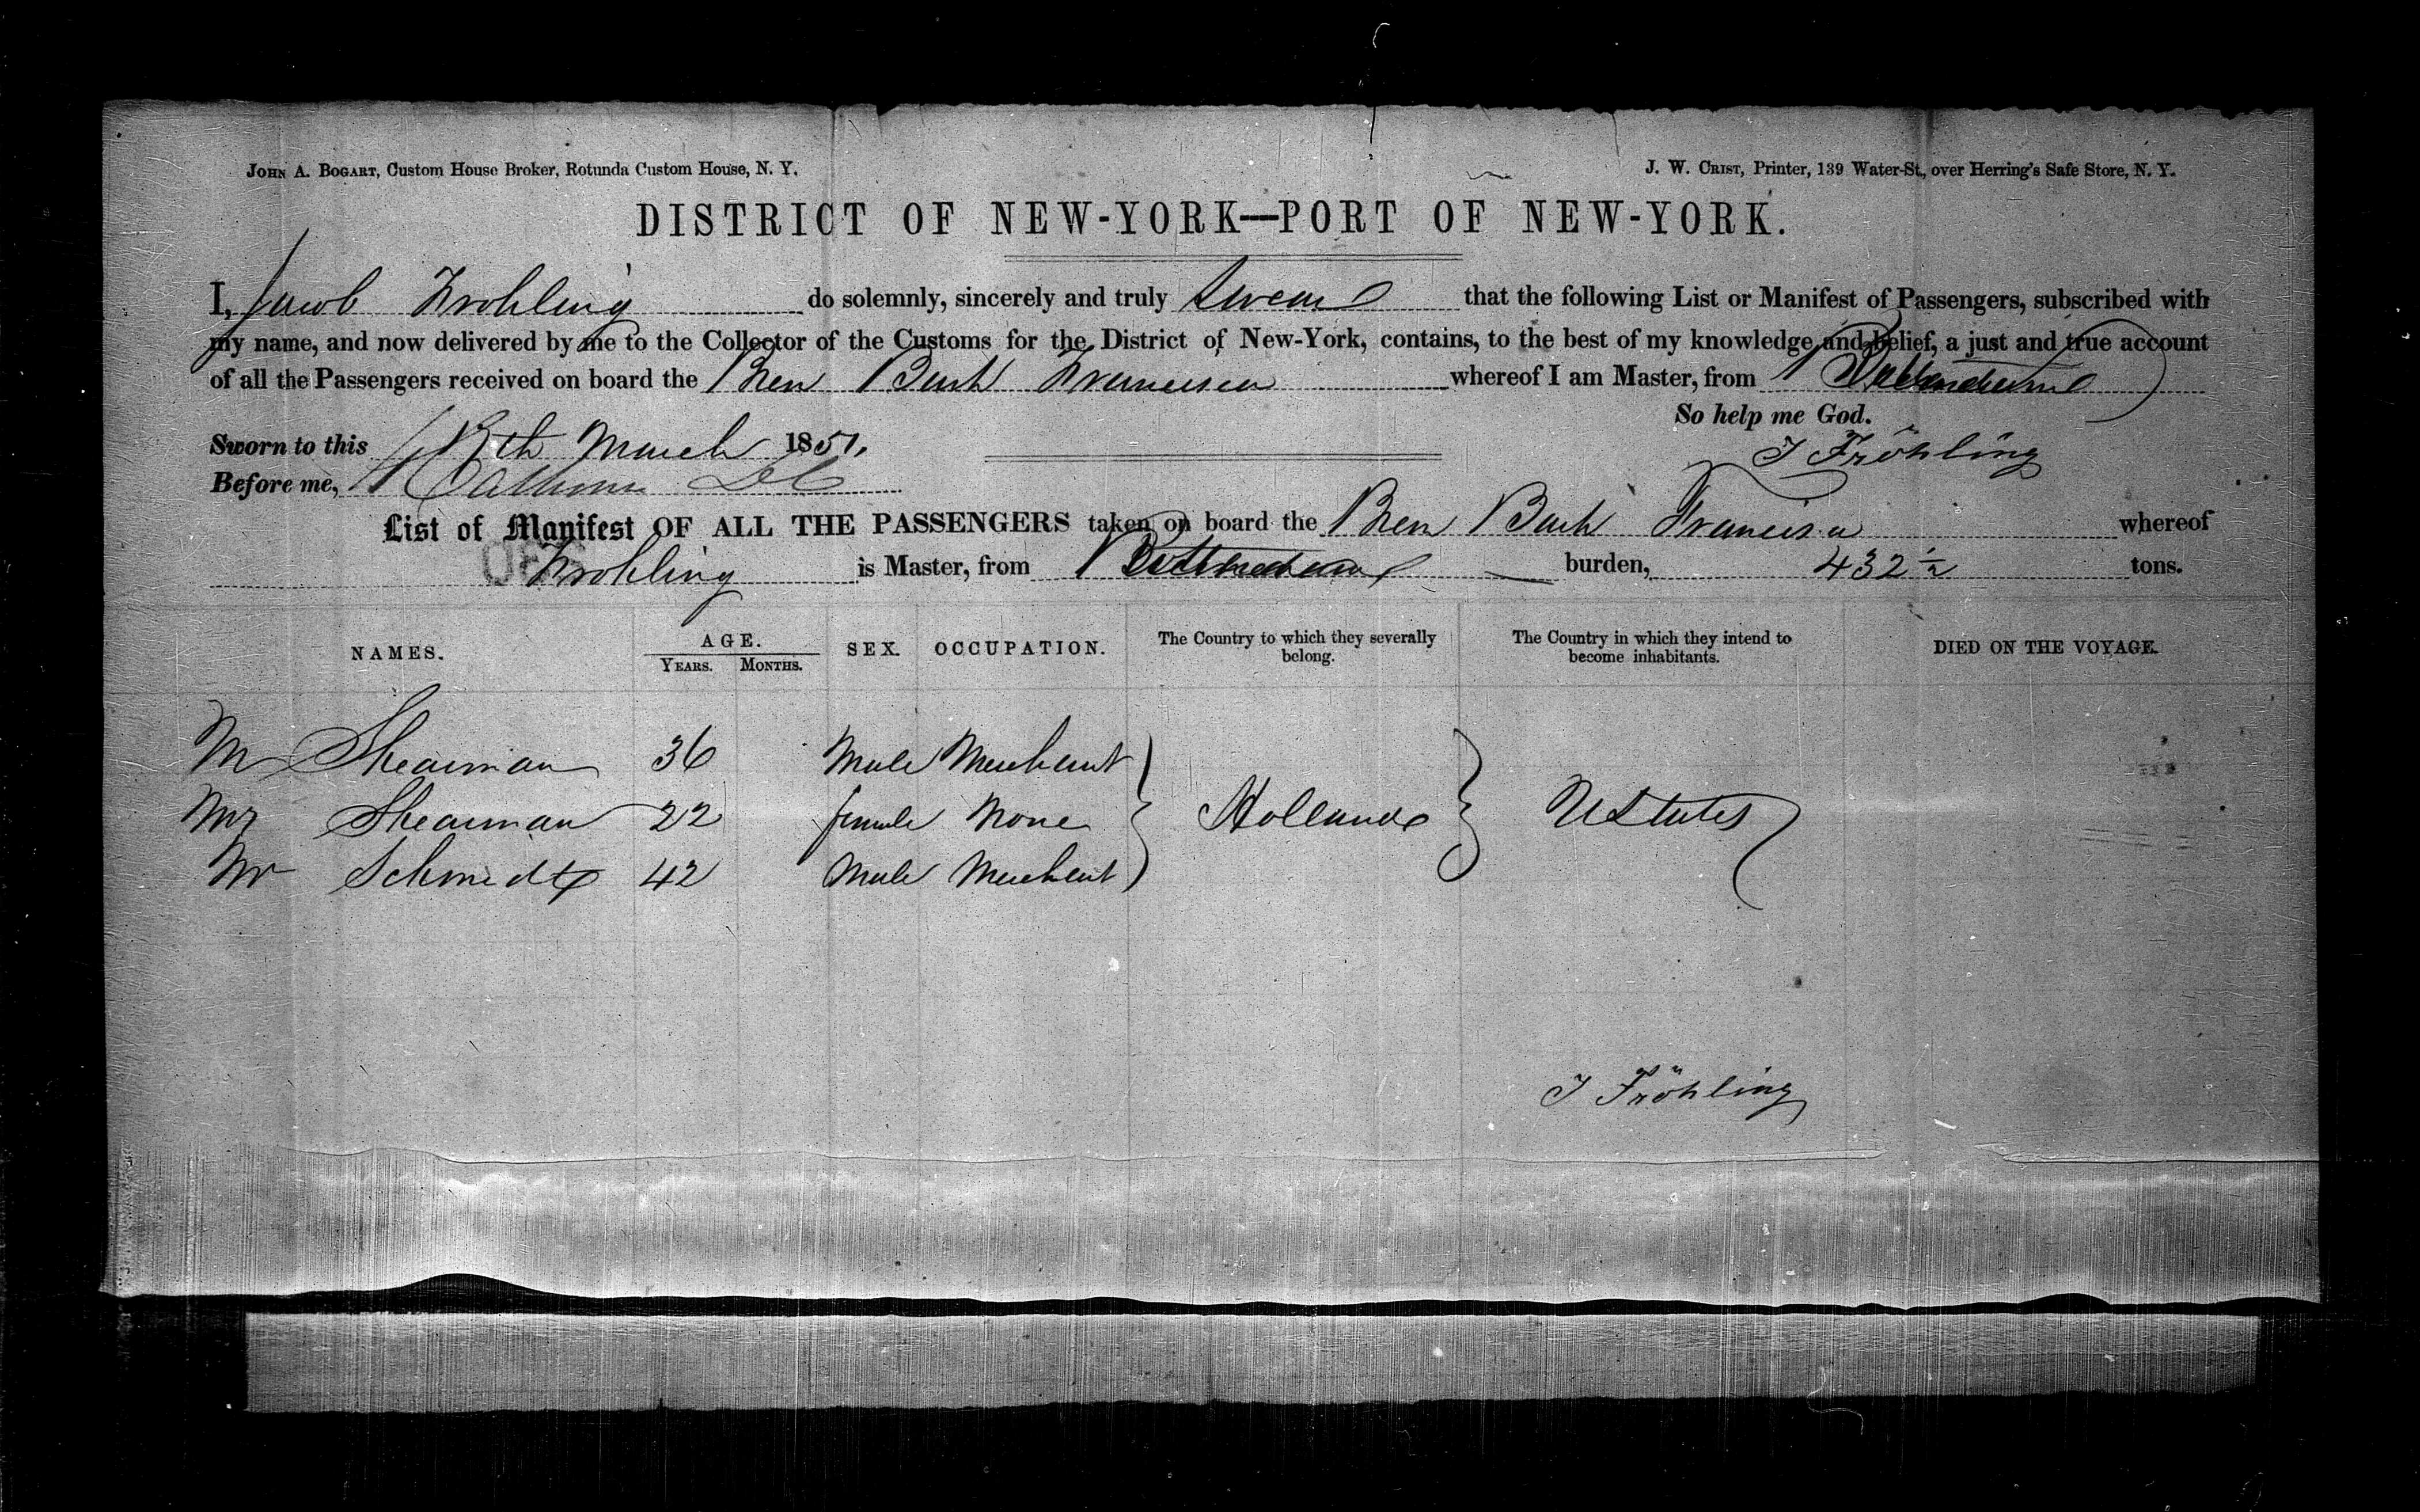 JOHN A. BOGART, Custom House Broker, Rotunda Custom House, N. Y.
J. W. CRIST, Printer, 139 Water-St., over Herring's Safe Store, N. Y.
DISTRICT OF NEW-YORK—PORT OF NEW-YORK.
I, Jacob Frohling do solemnly, sincerely and truly Swear that the following List or Manifest of Passengers, subscribed with
my name, and now delivered by me to the Collector of the Customs for the District of New-York, contains, to the best of my knowledge and belief, a just and true account
of all the Passengers received on board the Brem Bark Francisca whereof I am Master, from
So help me God.
Sworn to this 13th March 1851.
J Fröhling
Before me,
List of Manifest OF ALL THE PASSENGERS taken on board the Brem Bark Francisca whereof
Frohling is Master, from burden, 432½ tons.
NAMES. AGE. YEARS. MONTHS. SEX. OCCUPATION. The Country to which they severally belong. The Country in which they intend to become inhabitants. DIED ON THE VOYAGE.
Mr Shearman 36 Male Merchant
Mrs Shearman 22 female None Holland UStates
Mr Schmidt 42 Male Merchant
J Fröhling